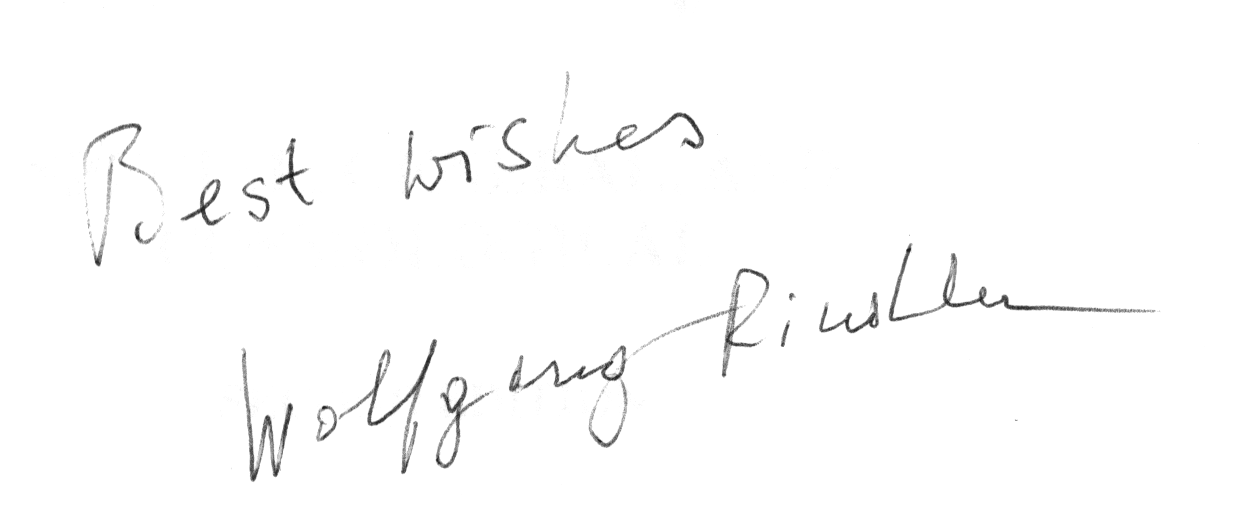 Best wishes
Wolfgang Rindler